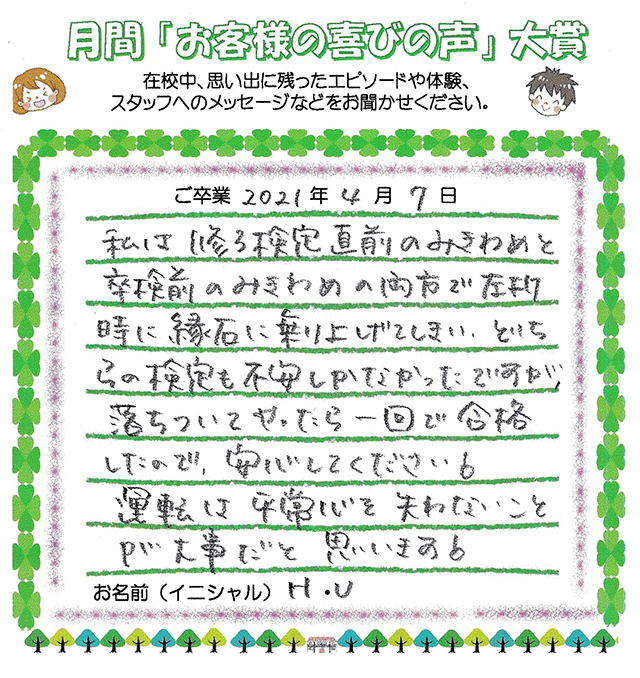 月間「お客様の喜びの声」大賞
在校中、思い出に残ったエピソードや体験、
スタッフへのメッセージなどをお聞かせください。
ご卒業 2021 年 4 月 7 日
私は修了検定直前のみきわめと
卒検前のみきわめの両方で左折
時に縁石に乗り上げてしまい、どち
らの検定も不安しかなかったですが、
落ちついてやったら一回で合格
したので、安心してください。
運転は平常心を失わないこと
が大事だと思います。
お名前（イニシャル） H.U